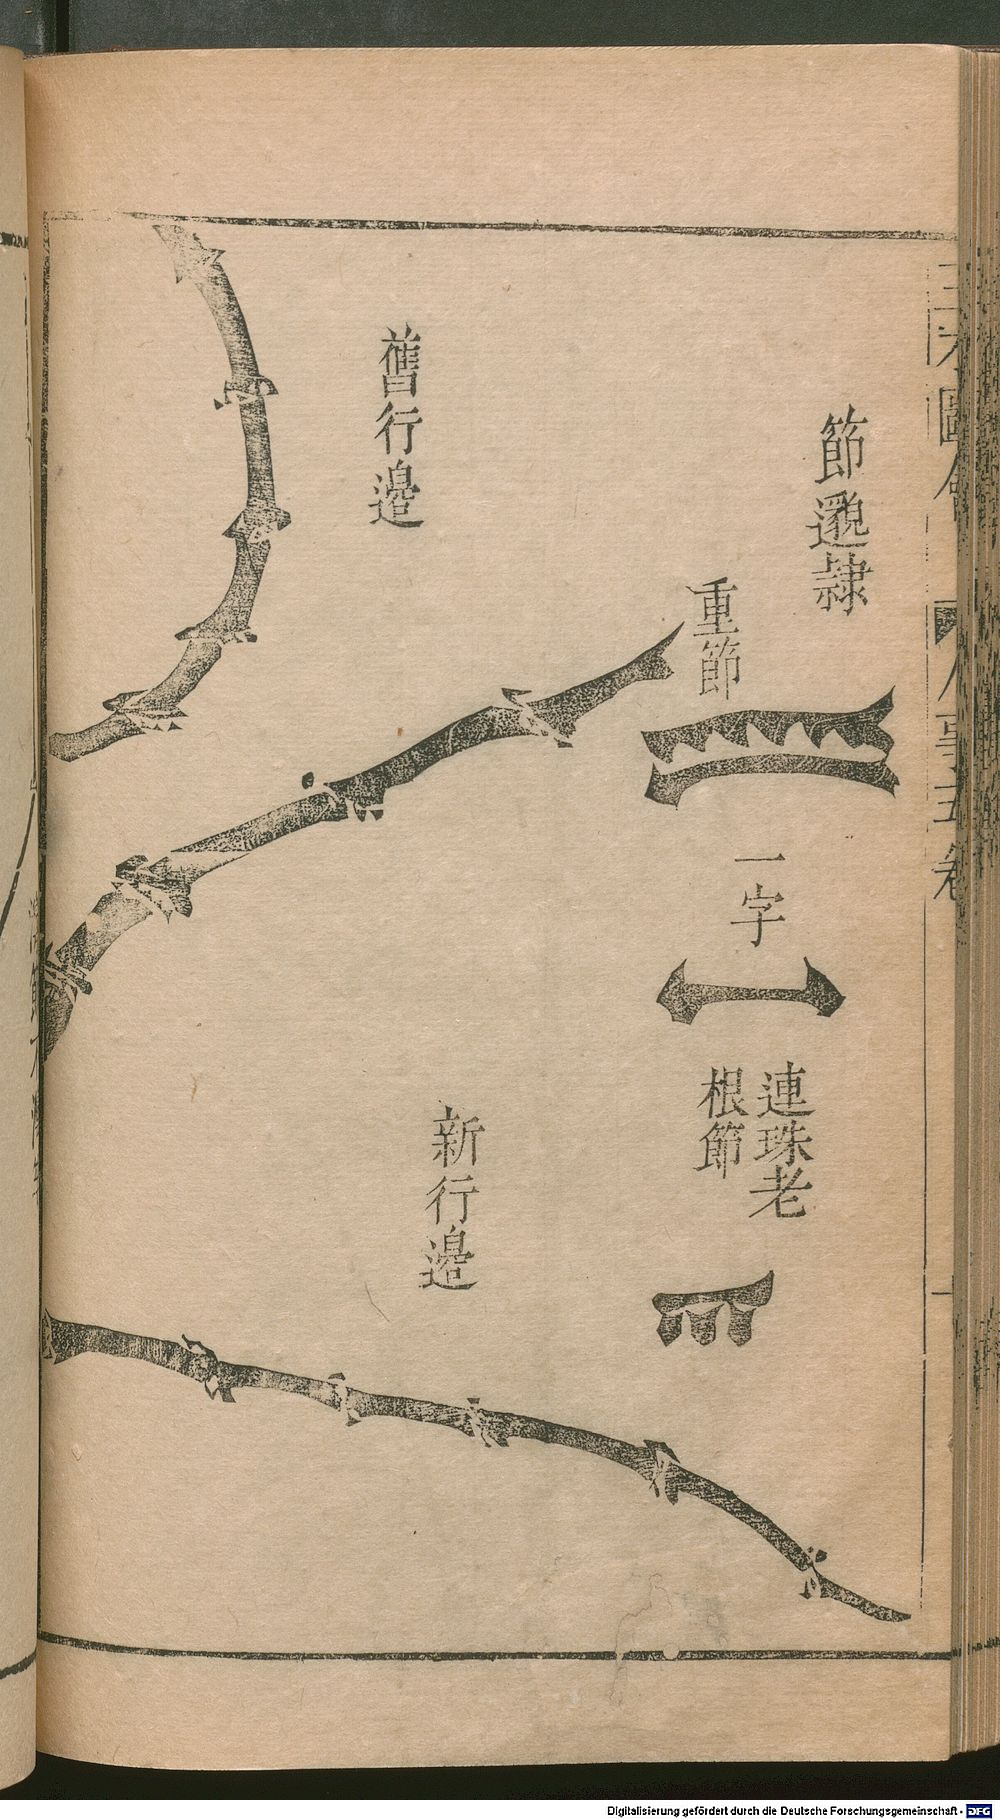 三才圖會
人事五卷
節邈隷
重節
一字
連珠老
根節
舊行邉
新行邉
Digitalisierung gefördert durch die Deutsche Forschungsgemeinschaft - DFG